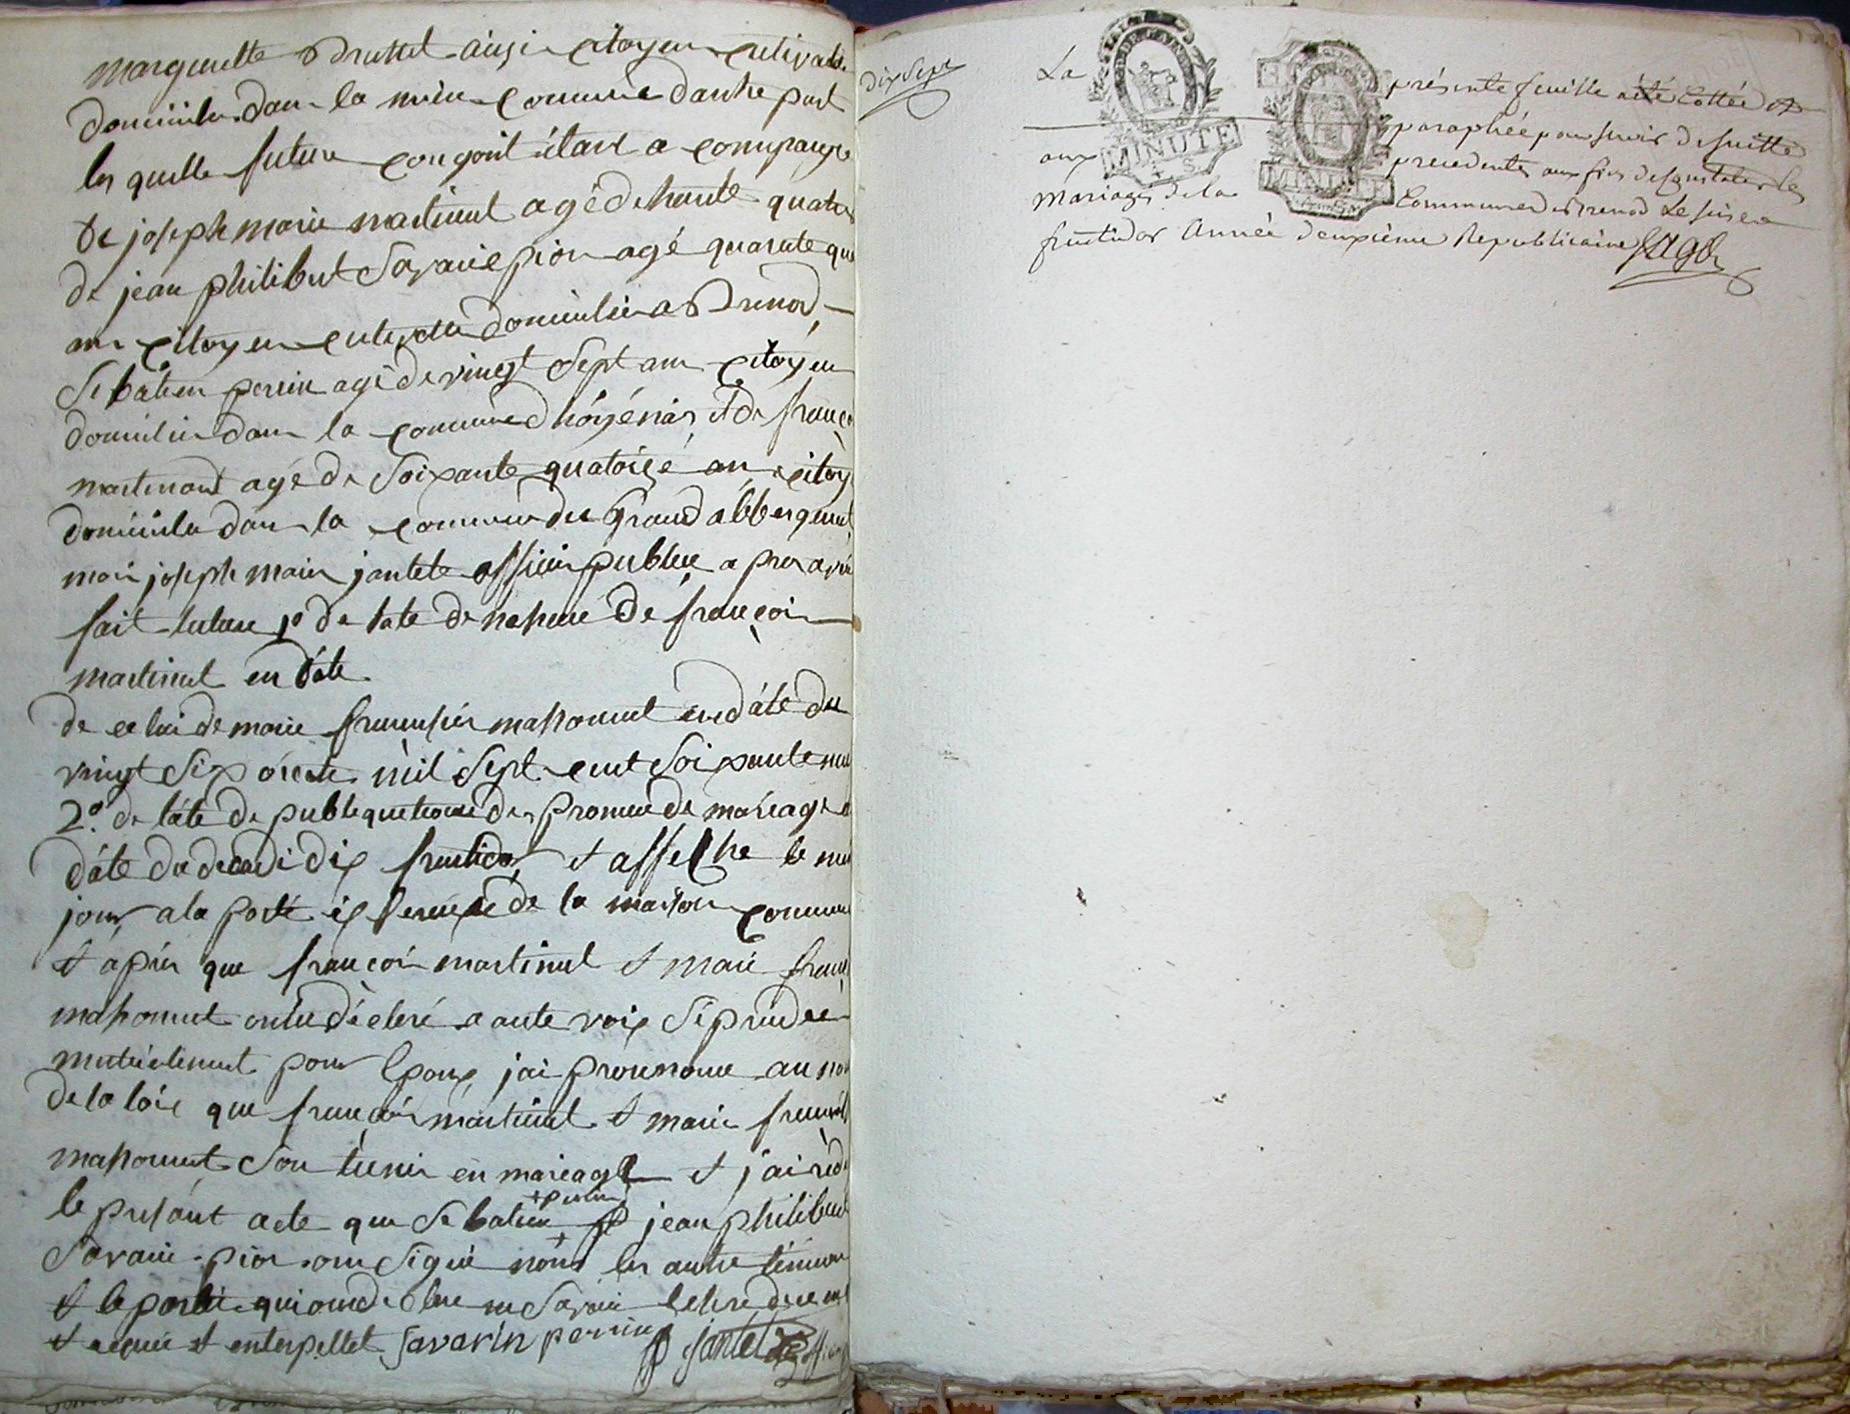 marguerite Druttel aussi citoyen cultivateur
domicilier dans la même commune dautre part
les quelle future conjoint étant a compangé
de joseph marie martinet agé de trente quatre
de jean philibert Savarin pion agé quarante
ans citoyen cultivateur domicilier a Brenod
Sebatien perrin agé de vingt Sept ans citoyen
domicilier dans la commune d'hoyénias et de françois
martinand agé de Soixante quatorze an citoy
domicilier dans la commune du grand abbergement
moi joseph marie jantet officier public a pres avoir
fait lecture 1º de late de nesence de françois
martinet en date
de celui de marie fransoise massonnet en date du
vingt Six octobre mil Sept cent Soixante neu
2º. de láte de publiquetions des promese de mariage
date du decadi dix fructidor et affiche le me
jour a la porte
de la maison commune
et après que françois martinet et marie franç
massonnet onteu déclaré a aute voix Se prendre
mutuelement pour Epoux jai prounonce au nom
de la loie que françois martinet et marie franc
massonnet Son tunis en mariage et j'ai redi
le présant acte que Sebatien + perrin jean philibert
Savarin pion onn Signé nons les autre temoin
et le partie qui on declare ne Savoir
et requis et enterpellet Savarin perrin jantet offic
Dix Sept
La présente feuille a été Cottée et
paraphée pour servir de suitte
aux MINUTE precedentes aux fins de constater les
MINUTE
mariages de la Commune de Brenod Le seize
fructidor Année deuxième Republicaine